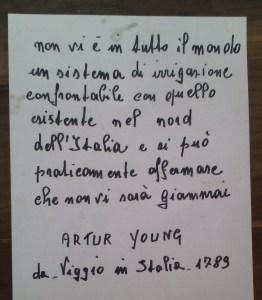 non vi è in tutto il mondo
un sistema di irrigazione
confrontabile con quello
esistente nel nord
dell'Italia e si può
praticamente affermare
che non vi sarà giammai
ARTUR YOUNG
da - Viggio in Italia - 1789